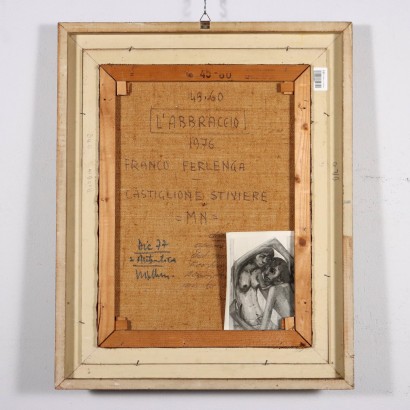 45-60
45·60
L'ABBRACCIO
1976
FRANCO FERLENGA
CASTIGLIONE D. STIVIERE
=MN=
Dic 77